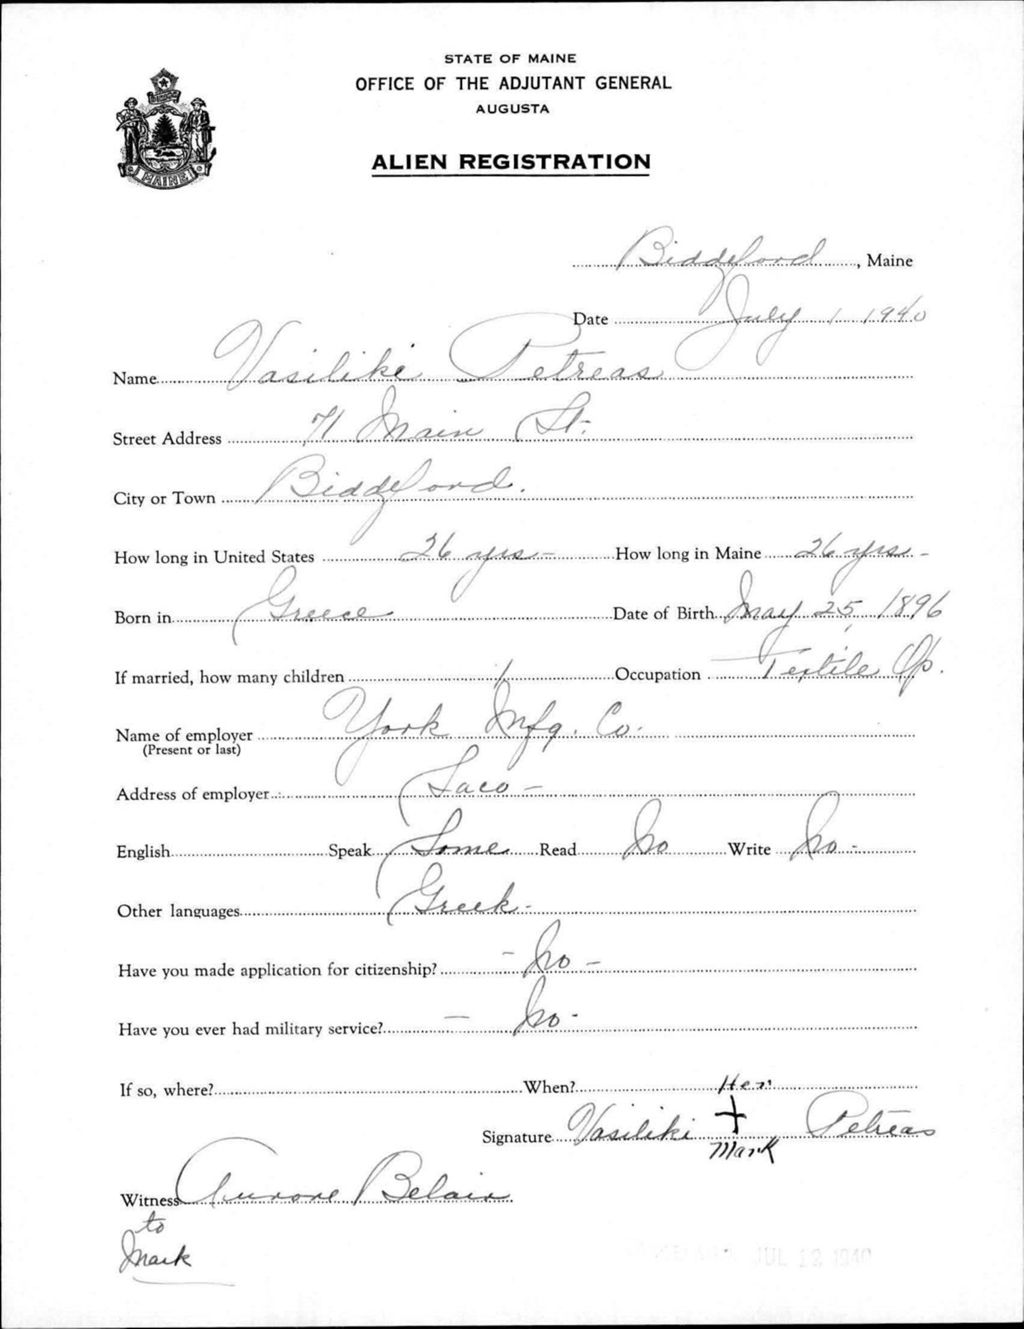 STATE OF MAINE
OFFICE OF THE ADJUTANT GENERAL
AUGUSTA
ALIEN REGISTRATION
MAINE
Biddeford, Maine
Date July 1 1940
Name Vasiliki Petreas
Street Address 71 Main St.
City or Town Biddeford.
How long in United States 26 yrs – How long in Maine 26 yrs –
Born in Greece Date of Birth May 25, 1896
If married, how many children 1 Occupation Textile Op.
Name of employer York Mfg. Co.
(Present or last)
Address of employer Saco –
English Speak Some Read No Write No –
Other languages Greek –
Have you made application for citizenship? – No –
Have you ever had military service? – No –
If so, where? When?
Her
Signature Vasiliki + Petreas
Mark
Witness Aurore Belair
to
Mark
JUL 12 1940